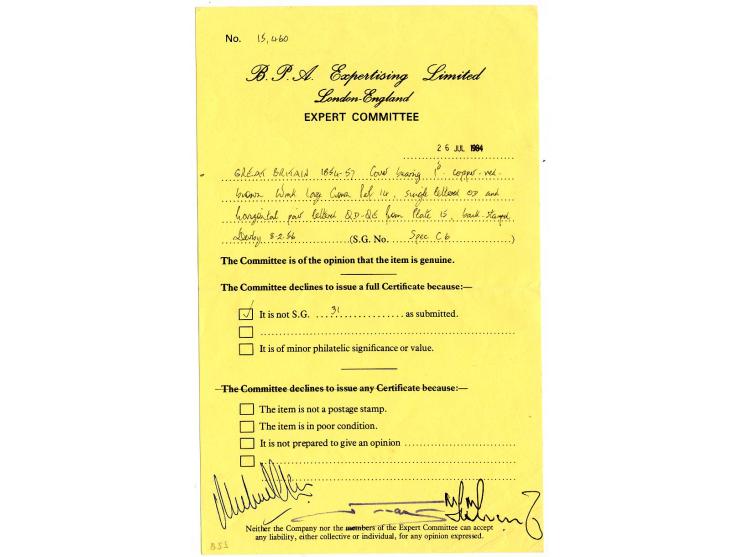 No. 15,460
B. P. A. Expertising Limited
London-England
EXPERT COMMITTEE
26 JUL 1984
GREAT BRITAIN 1854-57 Cover bearing 1d copper-red-
brown Wmk Large Crown Perf 14, single lettered and
horizontal pair lettered QD-QE from Plate 15, back-stamped
Derby 8-2-56 (S.G. No. Spec C6 )
The Committee is of the opinion that the item is genuine.
The Committee declines to issue a full Certificate because:—
It is not S.G. 31 as submitted.
It is of minor philatelic significance or value.
The Committee declines to issue any Certificate because:—
The item is not a postage stamp.
The item is in poor condition.
It is not prepared to give an opinion
Neither the Company nor the members of the Expert Committee can accept
any liability, either collective or individual, for any opinion expressed.